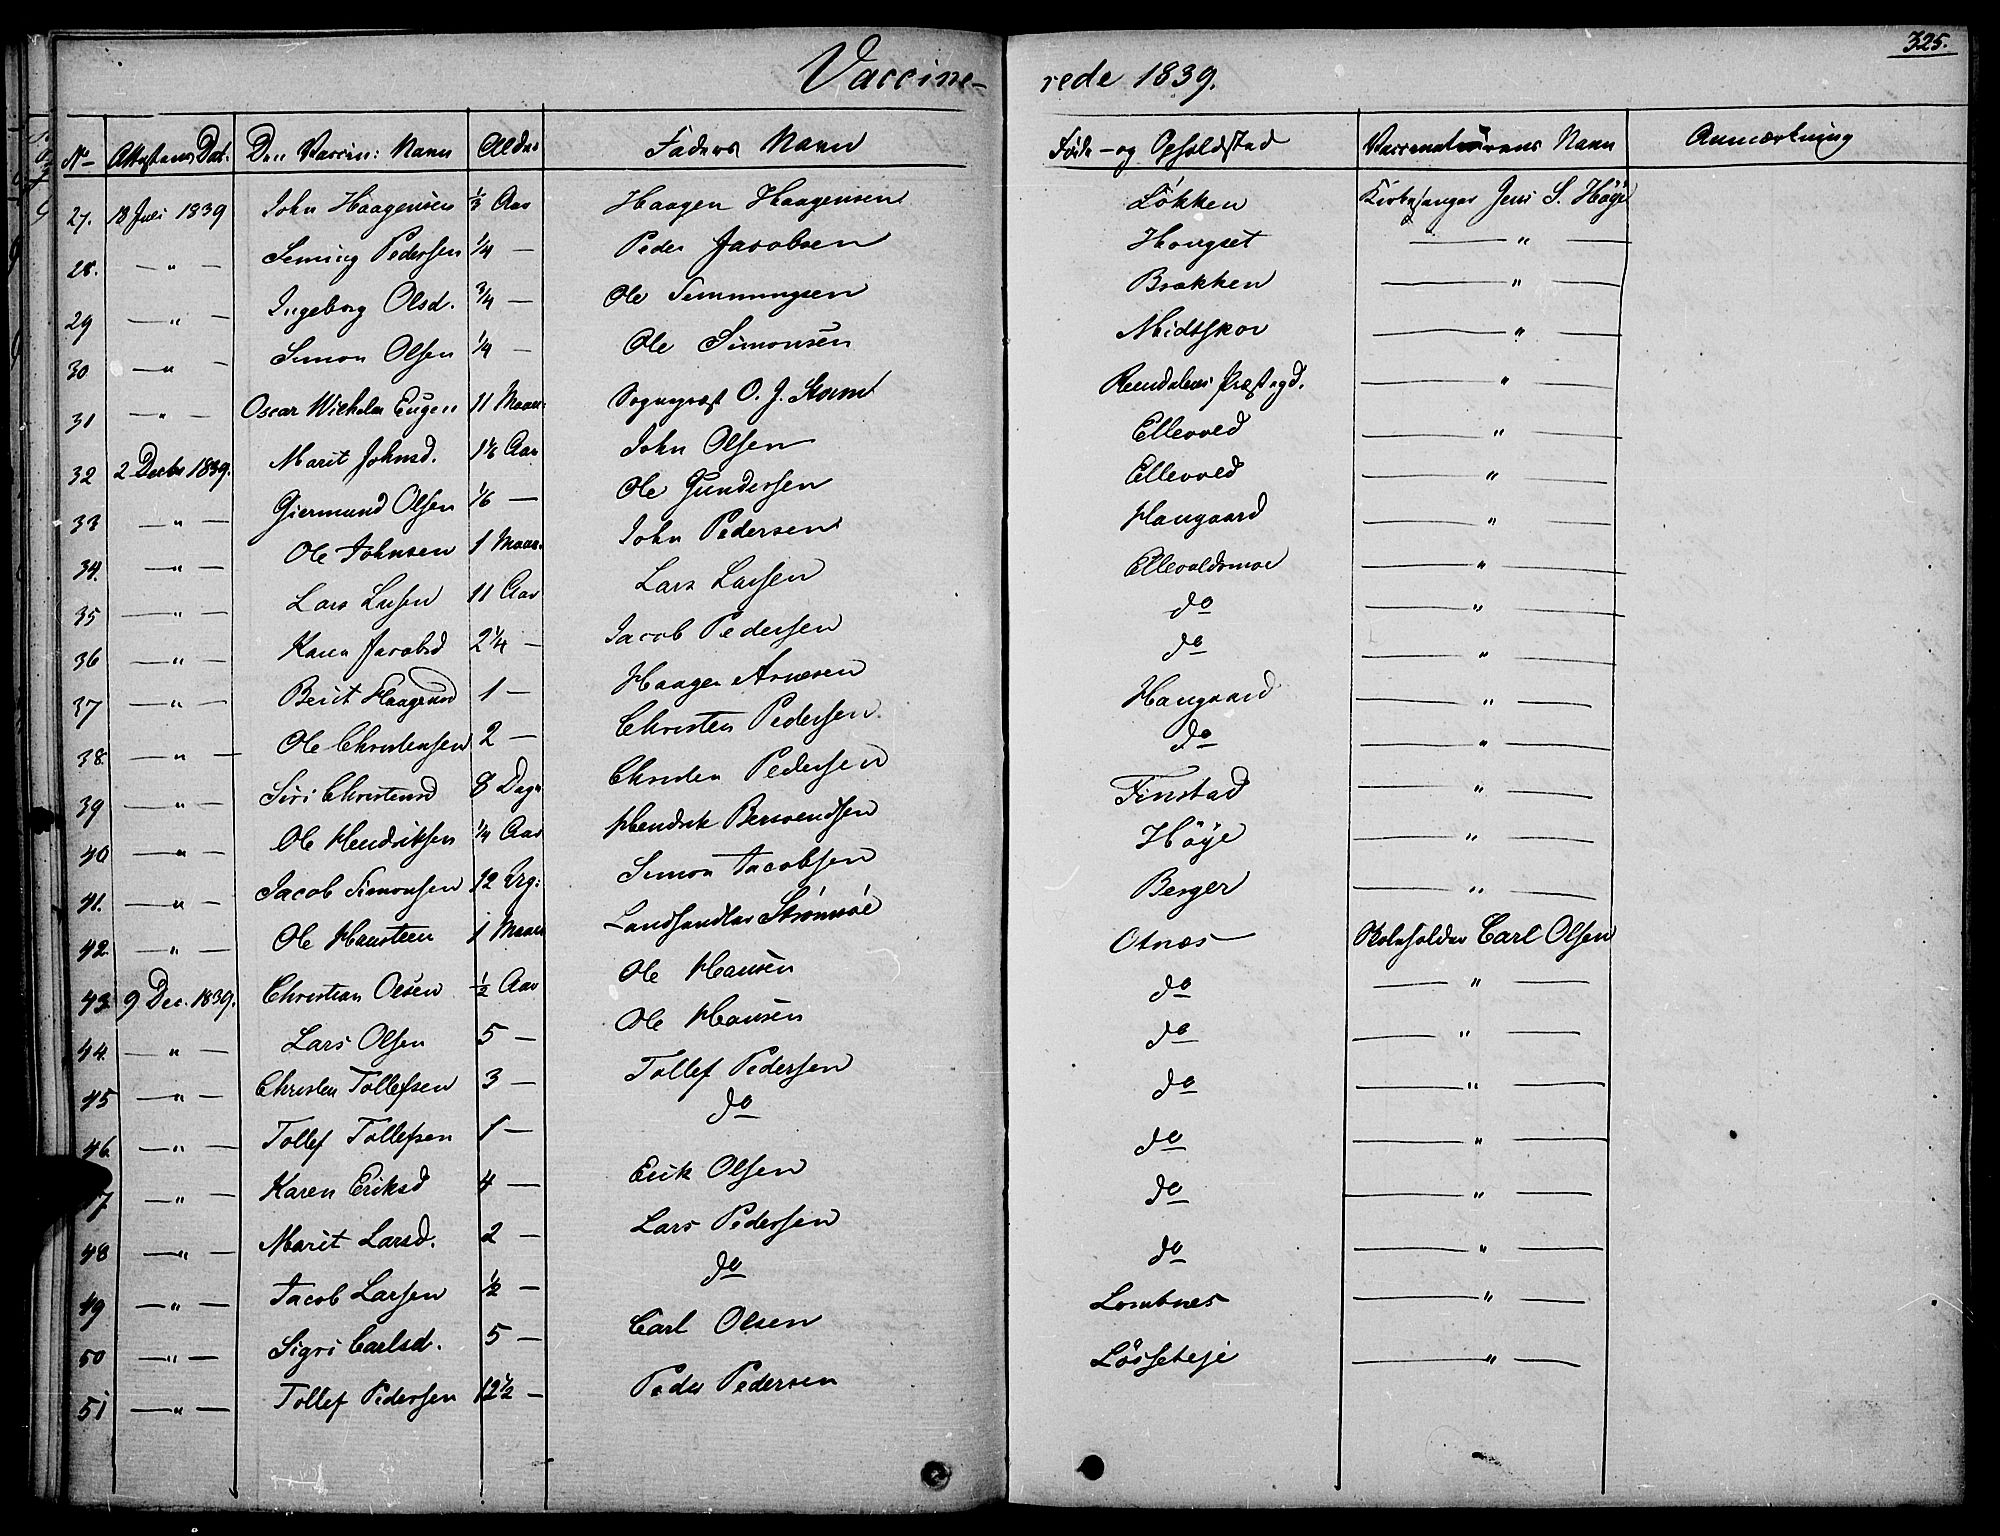 325.
Vaccine- rede 1839.
No Attestens Dat: Den Vaccin: Navn Alder Faders Navn Føde- og Opholdsted Vaccinateurens Navn Anmærkning
27. 18 Juli 1839 John Haagensen 1/3 Aar Haagen Haagensen Løkken Kirkesanger Jens S. Høye
28. — " — Seming Pedersen 1/4 — Peder Jacobsen Hougset — " —
29 — " — Ingeborg Olsd. 3/4 — Ole Semmingsen Brækken — " —
30 — " — Simon Olsen 1/4 — Ole Simonsen Midtskov — " —
31 — " — Oscar Wilhelm Eugen 11 Maan: Sognepræst O. J. Storm Reendalens Præstegd. — " —
32 2 Decbr 1839. Marit Johnsd. 1 1/6 Aar John Olsen Ellevold — " —
33 — " — Giermund Olsen 1/6 — Ole Gundersen Ellevold — " —
34. — " — Ole Johnsen 1 Maan. John Pedersen Haugaard — " —
35 — " — Lars Larsen 11 Aar Lars Larsen Ellevoldsmoe — " —
36 — " — Karen Jacobsd 2 1/4 — Jacob Pedersen do — " —
37 — " — Berit Haagensd 1 — Haagen Arnesen do — " —
38. — " — Ole Christensen 2 — Christen Pedersen. Haugaard — " —
39 — " — Siri Christensd 8 Dage Christen Pedersen do — " —
40 — " — Ole Hendriksen 1/4 Aar Hendrik Bersvendsen Finstad — " —
41. — " — Jacob Simonsen 12 Ug: Simon Jacobsen Høye — " —
42. — " — Ole Hansteen 1 Maan Landhandler Strømsøe Berger — " —
43 9 Dec. 1839. Christian Olsen 1/2 Aar Ole Hansen Otnæs Skoleholder Carl Olsen
44. — " — Lars Olsen 5 — Ole Hansen do — " —
45 — " — Christen Tollefsen 3 — Tollef Pedersen do — " —
46. — " — Tollef Tollefsen 1 — do do — " —
7 — " — Karen Eriksd 4 — Erik Olsen do — " —
48 — " — Marit Larsd. 2 — Lars Pedersen do — " —
49 — " — Jacob Larsen 1/2 — do do — " —
50 — " — Sigri Carlsd. 5 — Carl Olsen Lombnes — " —
51 — " — Tollef Pedersen 12 1/2 — Peder Pedersen Løsseteje — " —